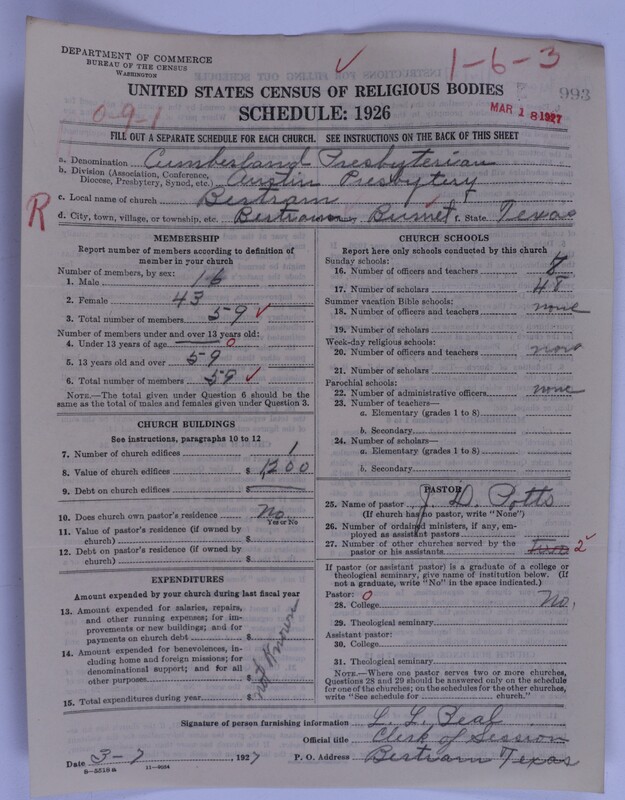 DEPARTMENT OF COMMERCE
BUREAU OF THE CENSUS
WASHINGTON
1-6-3
993
UNITED STATES CENSUS OF RELIGIOUS BODIES
MAR 18 1927
0-9-1
SCHEDULE: 1926
FILL OUT A SEPARATE SCHEDULE FOR EACH CHURCH. SEE INSTRUCTIONS ON THE BACK OF THIS SHEET
a. Denomination Cumberland Presbyterian
b. Division (Association, Conference, Diocese, Presbytery, Synod, etc.) Austin Presbytery
c. Local name of church Bertram
R
d. City, town, village, or township, etc. Bertram Burnet f. State Texas
MEMBERSHIP
Report number of members according to definition of
member in your church
Number of members, by sex:
1. Male 16
2. Female 43
3. Total number of members 59
Number of members under and over 13 years old:
4. Under 13 years of age 0
5. 13 years old and over 59
6. Total number of members 59
NOTE.—The total given under Question 6 should be
same as the total of males and females given under Question 3.
CHURCH BUILDINGS
See instructions, paragraphs 10 to 12
7. Number of church edifices 1
8. Value of church edifices $ 1200
9. Debt on church edifices $
10. Does church own pastor's residence No
Yes or No
11. Value of pastor's residence (if owned by
church) $
12. Debt on pastor's residence (if owned by
church) $
EXPENDITURES
Amount expended by your church during last fiscal year
13. Amount expended for salaries, repairs,
and other running expenses; for im-
provements or new buildings; and for
payments on church debt $
14. Amount expended for benevolences, in-
cluding home and foreign missions; for
denominational support; and for all
other purposes $
15. Total expenditures during year $
not Known
CHURCH SCHOOLS
Report here only schools conducted by this church
Sunday schools:
16. Number of officers and teachers
17. Number of scholars 48
Summer vacation Bible schools:
18. Number of officers and teachers none
19. Number of scholars
Week-day religious schools:
20. Number of officers and teachers none
21. Number of scholars
Parochial schools:
22. Number of administrative officers none
23. Number of teachers—
a. Elementary (grades 1 to 8)
b. Secondary
24. Number of scholars—
a. Elementary (grades 1 to 8)
b. Secondary
PASTOR
25. Name of pastor J. D. Potts
(If church has no pastor, write "None")
26. Number of ordained ministers, if any, em-
ployed as assistant pastors
27. Number of other churches served by the
pastor or his assistants Two 2
If pastor (or assistant pastor) is a graduate of a college or
theological seminary, give name of institution below. (If
not a graduate, write "No" in the space indicated.)
Pastor: 0
28. College No.
29. Theological seminary
Assistant pastor:
30. College
31. Theological seminary
NOTE.—Where one pastor serves two or more churches,
Questions 28 and 29 should be answered only on the schedule
for one of the churches; on the schedules for the other churches,
write "See schedule for church."
Signature of person furnishing information L. L.
Official title Clerk of Session
Date 3-7, 1927 P. O. Address Bertram Texas
11-9084